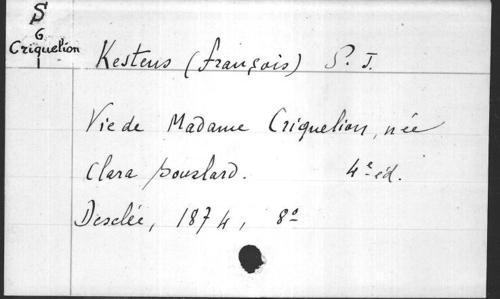 S
G
Criquelion
1
Kestens (françois) S. J.
Vie de Madame Criquelion, née
Clara poussard. 4e éd.
Desclée, 1874, 8o